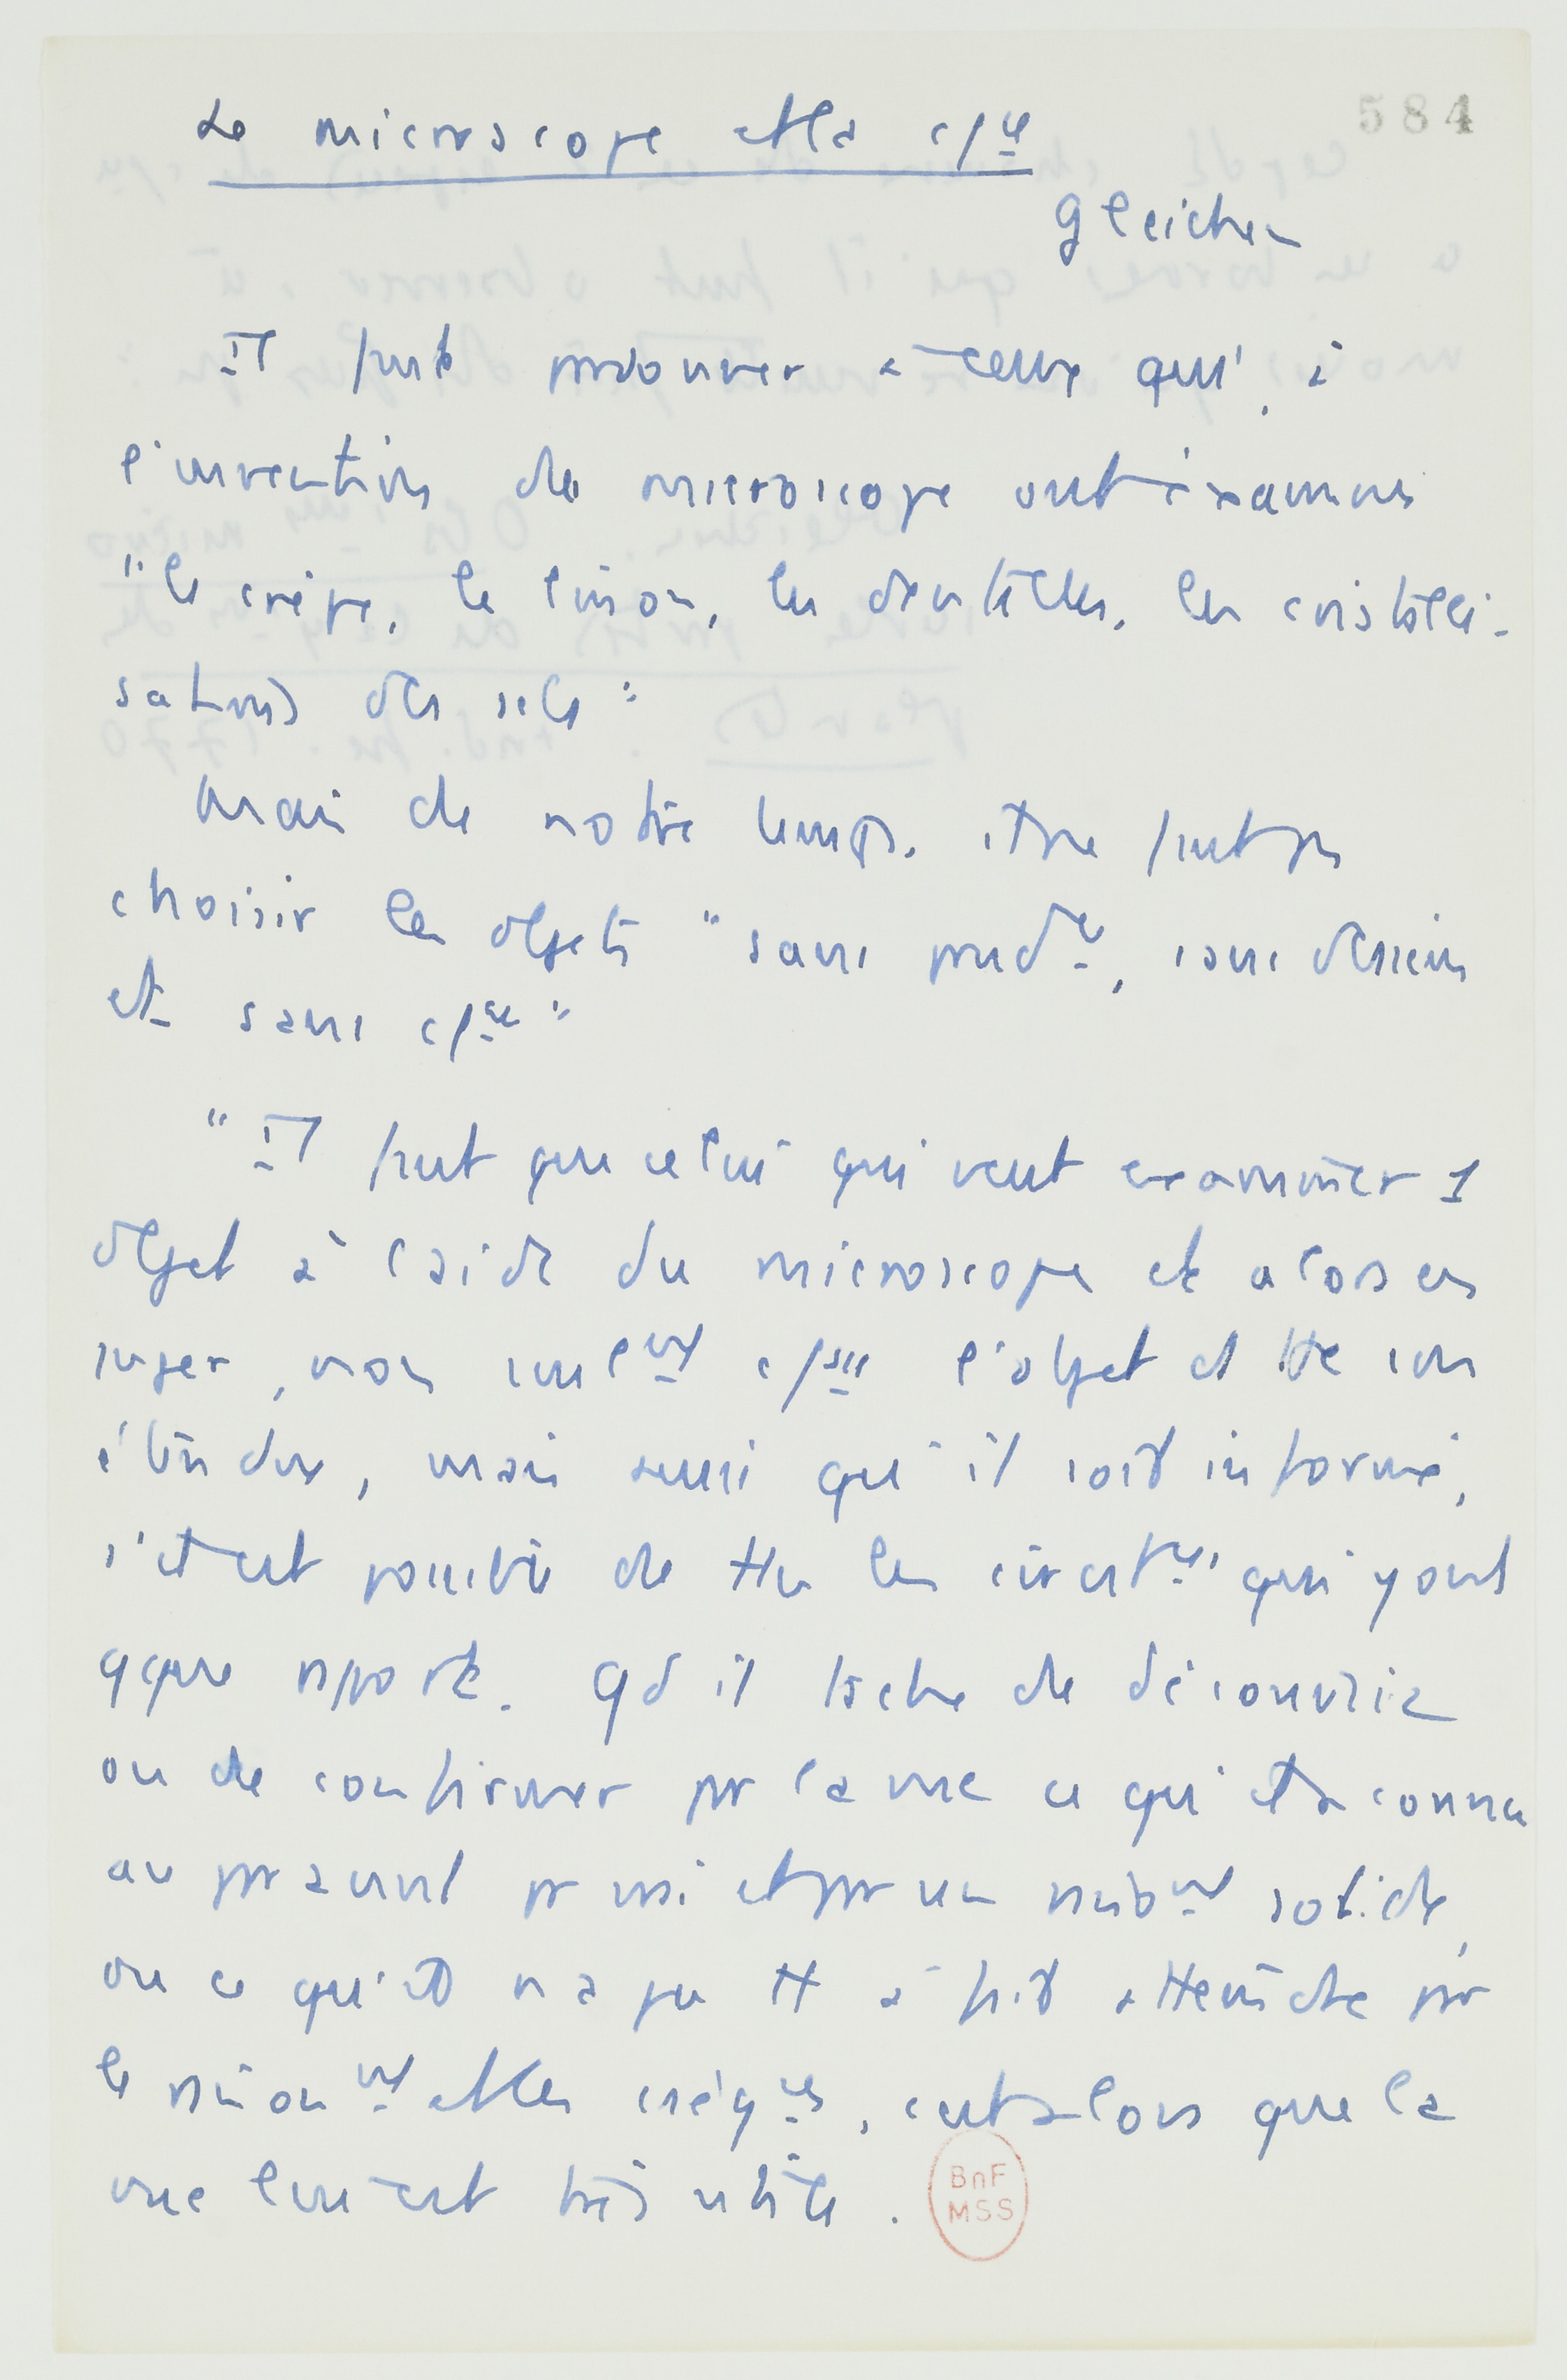 584
Le microscope et la c/ce
Gleichen
Il faut pardonner à ceux qui, à
l'invention du microscope ont examiné
"le crêpe, le linon, les dentelles, les cristalli-
sations des sels"
Mais de notre temps, il ne faut pas
choisir les objets "sans prudce, sans dessein
et sans c/ce"
"Il faut que celui qui veut examiner 1
objet à l'aide du microscope et alors en
juger, non seulmt c/sse l'objet et tte son
étendue, mais aussi qu'il soit informé,
s'il est possible de ttes les circstces qui y ont
qque rapport. Qd il tâche de découvrir
ou de confirmer par la vue ce qui était connu
auparavant par lui et par un raisonmt solide,
ou ce qu'il n'a pu tt à fait atteindre par
le raisonmt et les conséqces, c'est alors que la
vue lui est très utile.
BnF
MSS